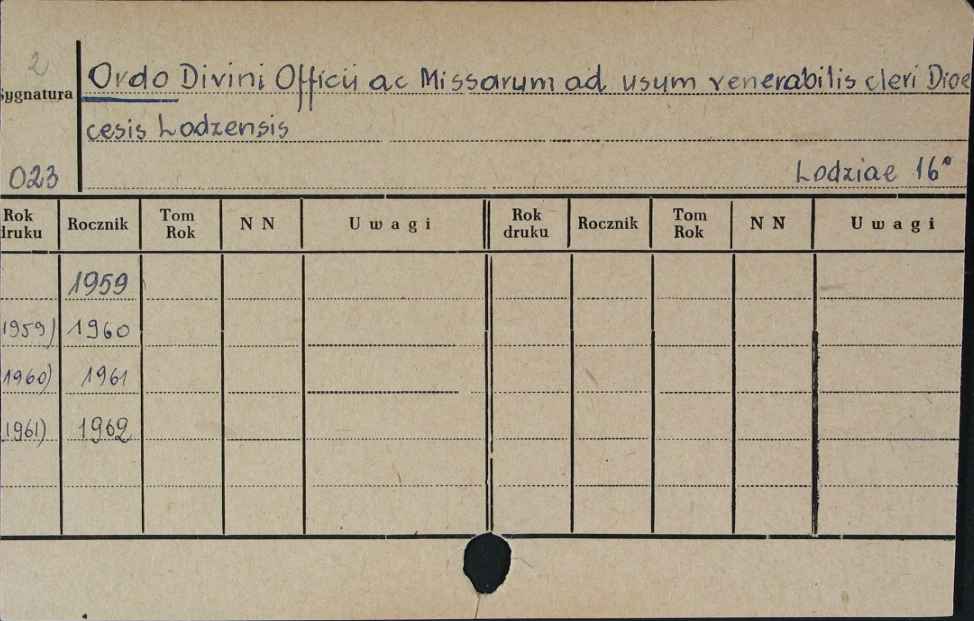 2
Sygnatura
Ordo Divini Officii ac Missarum ad usum venerabilis cleri Dioe
cesis Lodzensis
023
Lodziae 16°
Rok druku Rocznik Tom Rok N N Uwagi Rok druku Rocznik Tom Rok N N Uwagi
1959
1959) 1960
1960) 1961
1961) 1962